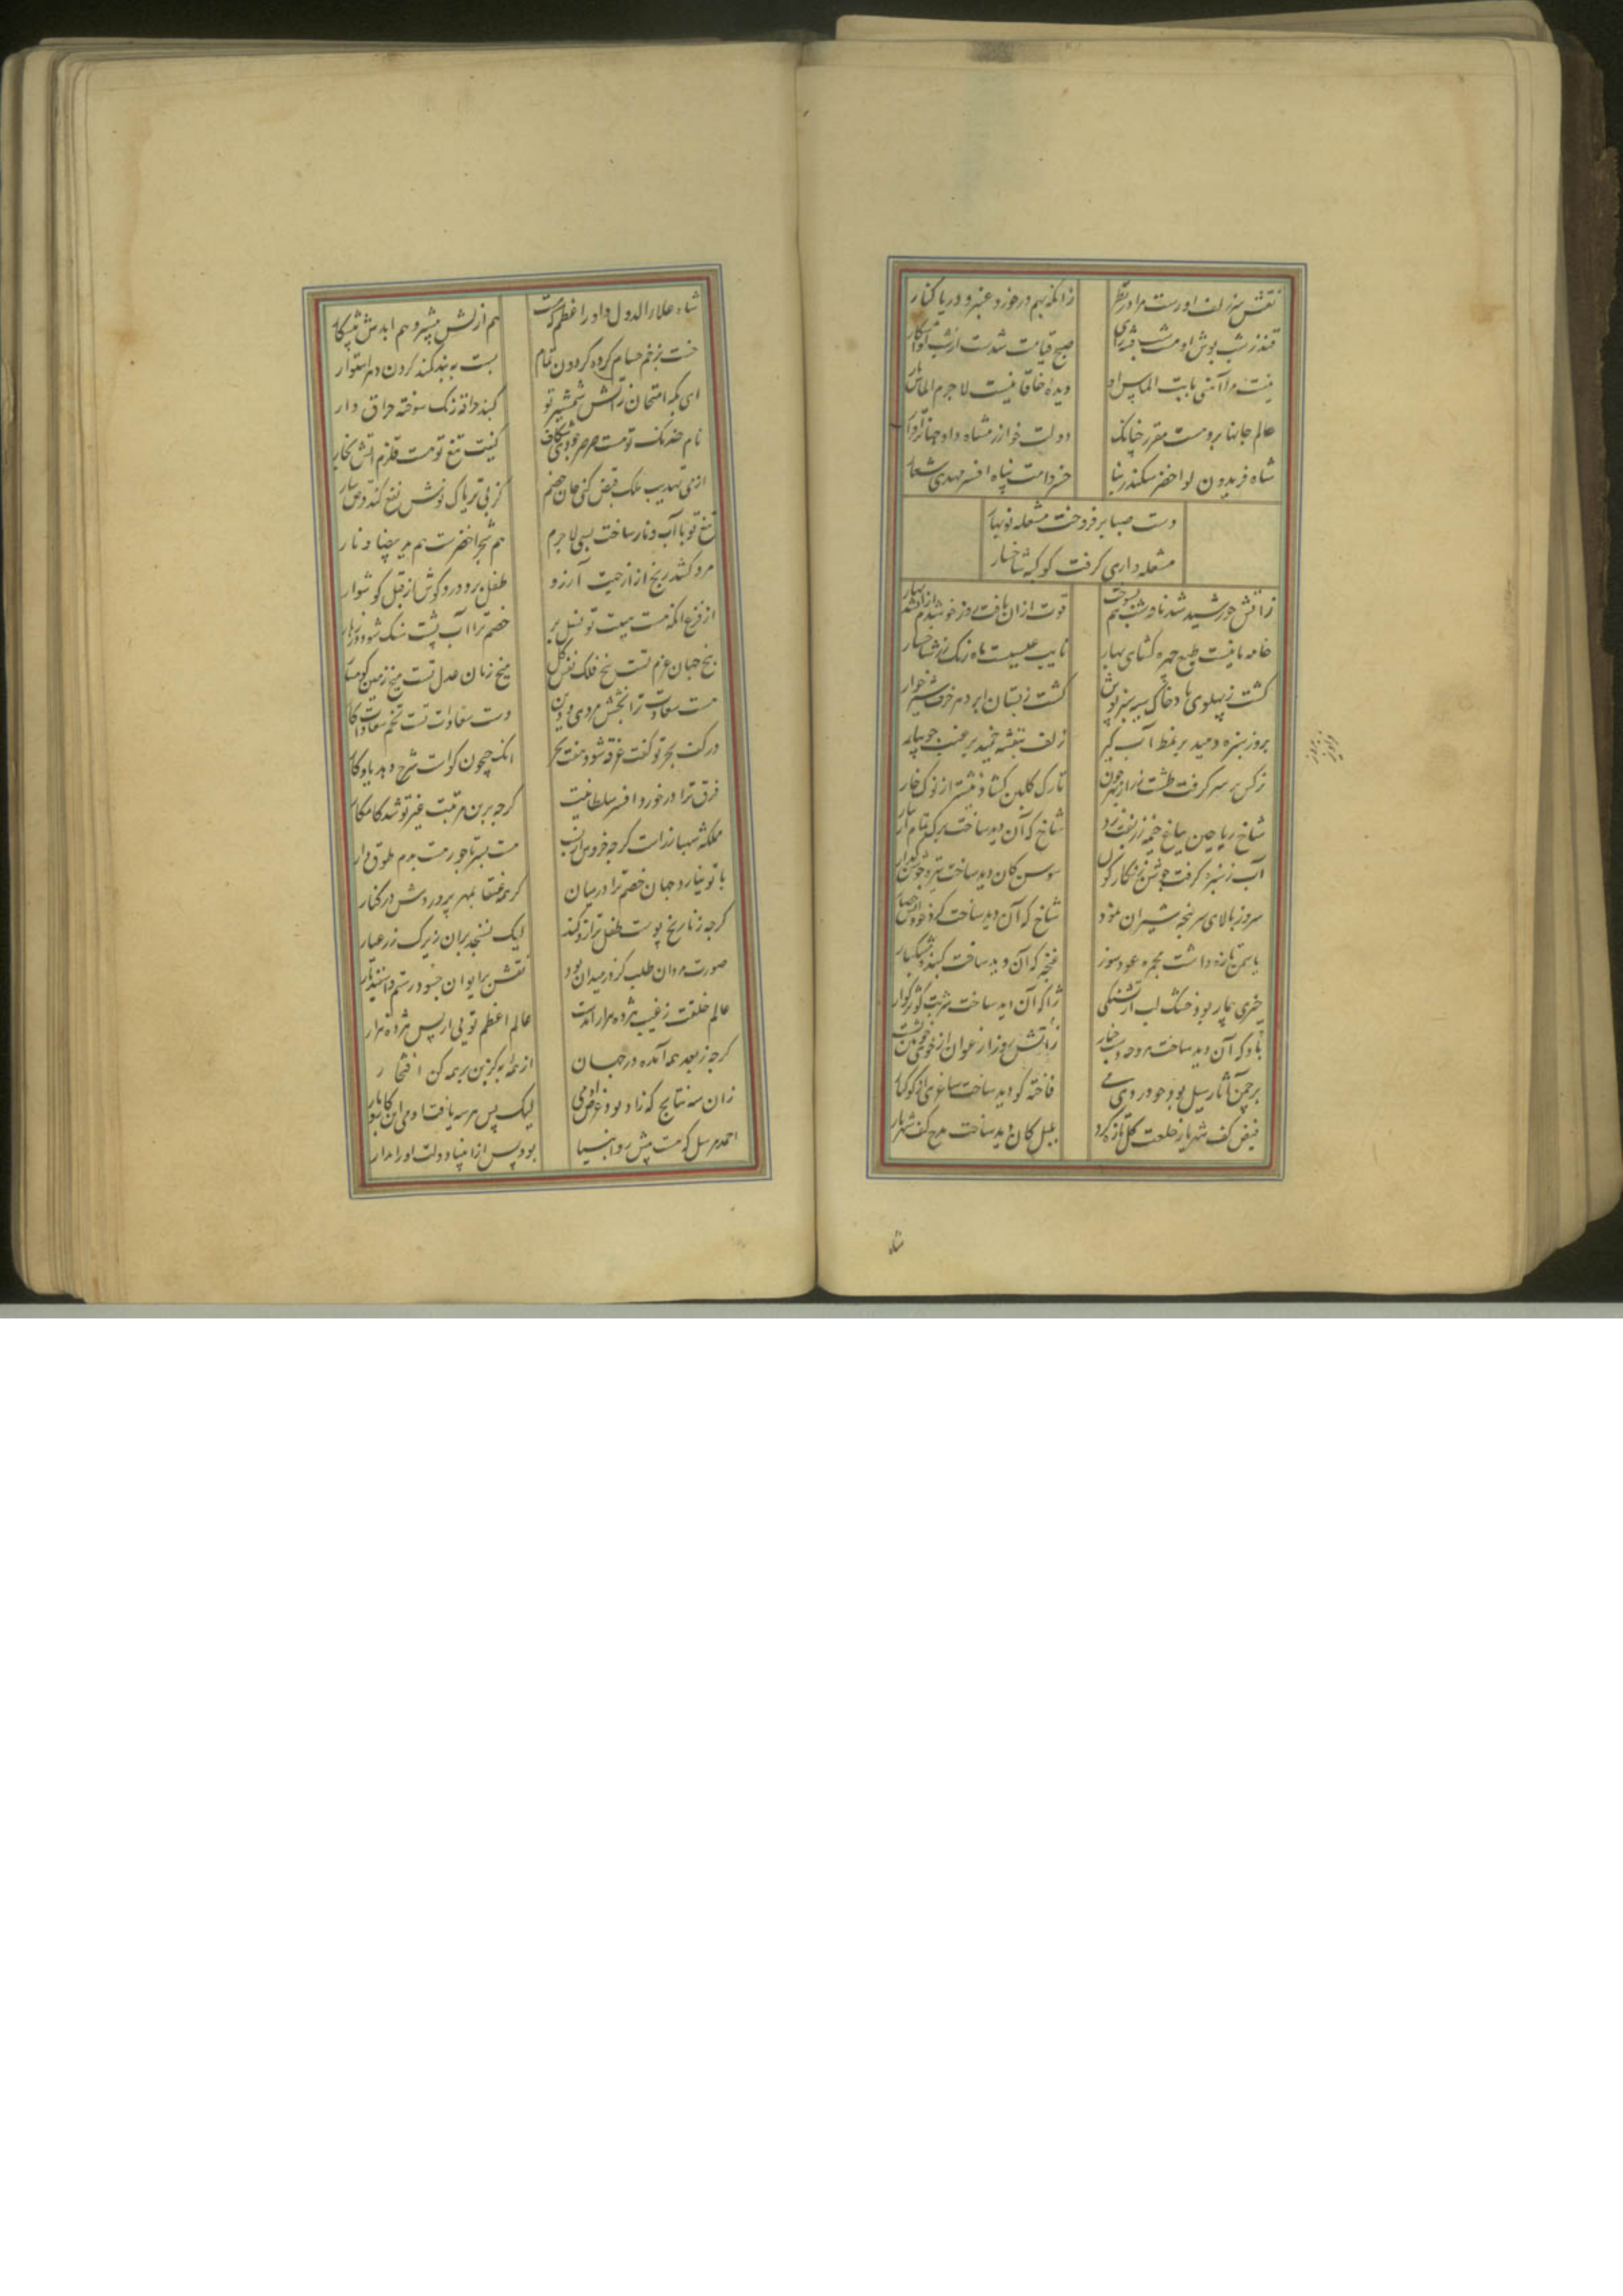 نقش سر زلف اورست مرا در نظر زانکه بهم درخورد عنبر و دریا کنار
قندز شب پوش او هست شب فتنه زای صبح قیامت شدست از شب او آشکار
نیست مرا آهنی بابت الماس او دیده خاقانیست لاجرم الماس بار
عالم جانها برو هست مقرر چنانک دولت خوارزمشاه داد جهانرا قرار
شاه فریدون لوا خضر سکندر بنا خسرو امت پناه افسر مهدی شعار
دست صبا برفروخت مشعله نوبهار
مشعله داری کرفت کوکبه شاخسار
زاتش خورشید شد نافه شب نیم سوخت قوت ازان یافت روز خوش دم شد از بهار
خامه مانیست طبع چهره کشای بهار نایب عیسیست ماه رنک رز شاخسار
کشت ز پهلوی باد خاک سیه سبز پوش کشت ز پستان ابر دهر خرف شیرخوار
بروز سبزه دمید بر نمط آب کیر زلف بنفشه خمید بر غبب جویبار
نرکس بر سر کرفت طشت زر از بهر خون تارک کلبن کشاد نیشتر از نوک خار
شاخ ریاحین بباغ خیمه زربفت زد شاخ که آن دید ساخت برک تمام نثار
آب ز سبزه کرفت جوشن زنکارکون سوسن کان دید ساخت نیزه جوشن کذار
سرو ز بالای سر پنجه شیران نمود شاخ که آن دید ساخت کرد خود از خون حصار
یاسمن تازه داشت مجمره عود سوز غنچه که آن دید ساخت کنبد مشکبار
خیری بیمار بود خشک لب از تشنکی ژاله که آن دید ساخت شربت کوثر کوار
باد که آن دید ساخت مروحه دست چنار زاتش روز ارغوان در خوی خونین نشست
بر چمن آثار سیل بود چو دردی می فاخته کو دید ساخت ساغری از کوکنار
فیض کف شهریار خلعت کل تازه کرد بلبل کان دید ساخت مدح کف شهریار
شاه
شاه علاء الدول داور اعظم که هست هم ازلش پیشرو هم ابدش پیشکار
خست بزخم حسام کرده کردون تمام بست به بند کمند کردن دهر استوار
ای بکه امتحان زاتش شمشیر تو کنبد حراقه رنک سوخته حراق دار
نام خدنک تو هست صرصر جودی شکاف کنیت تیغ تو هست قلزم آتش بخار
از پی تهذیب ملک قبض کنی جان خصم کز پی تریاک نوش نفع کند قرص مار
تیغ تو با آب و نار ساخت بسی لاجرم هم شجر اخضرست هم ید بیضا و نار
مرد کشد رنج آز از جهت آرزو طفل برد درد کوش از قبل کوشوار
از فزع آنکه هست هیبت تو نسل بر خصم ترا آب پشت سنک شود زهر بار
بیخ جهان عزم تست بیخ فلک نفس کل میخ زمان عدل تست میخ زمین کوهسار
هست سعادت ترا بخشش مردی و دین دست سعادات تست تخم سعادات کار
در کف بحر تو کفت غرقه شود هفت بحر انک جیحون کواست شرح دهد یادکار
فرق ترا در خورد افسر سلطانیت کرچه برین مرتبت غیر تو شد کامکار
ملکه شهباز راست کرچه خروس از نسب هست بسر تاجور هست بدم طوق دار
با تو نیارد جهان خصم ترا در میان کرچه عنقا بمهر پروردش در کنار
کرچه ز نارنج پوست طفل ترازو کند لیک نسنجد بران زیرک زر عیار
صورت مردان طلب کز در میدان بود نقش بر ایوان چه سود رستم و اسفندیار
عالم خلقت ز غیب هژده هزار آمدست عالم اعظم تویی از پس هژده هزار
کرچه ز بعد همه آمده در جهان از همه به برکزین بر همه کن افتخار
زان سه نتایج که زاد بود غرض آدمی لیک پس هر سه یافت آدمی این کار و بار
احمد مرسل که هست پیش رو انبیا بود پس از انبیا دولت او را مدار